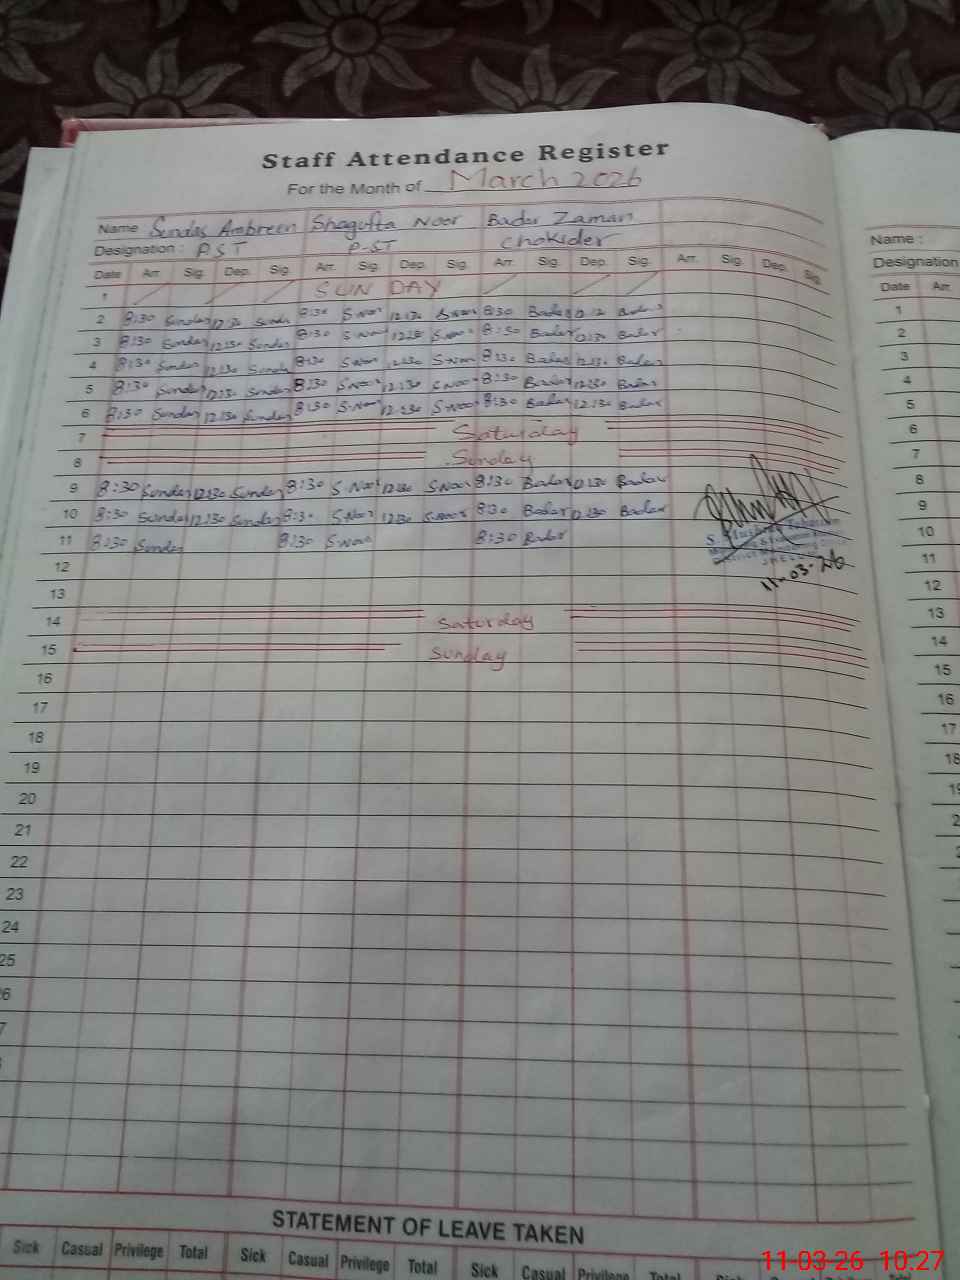 Staff Attendance Register
For the Month of March 2026
Name Sundas Ambreen Shagufta Noor Badar Zaman
Designation : PST P-ST Chokider
Date Arr. Sig. Dep. Sig. Arr. Sig. Dep. Sig. Arr. Sig. Dep. Sig. Arr. Sig. Dep. Sig.
1 SUNDAY
2 8:30 Sundas 12:30 Sundas 8:30 S.Noor 12:30 S.Noor 8:30 Badar 12:12 Badar
3 8:30 Sundas 12:30 Sundas 8:30 S.Noor 12:30 S.Noor 8:30 Badar 12:30 Badar
4 8:30 Sundas 12:30 Sundas 8:30 S.Noor 12:30 S.Noor 8:30 Badar 12:30 Badar
5 8:30 Sundas 12:30 Sundas 8:30 S.Noor 12:30 S.Noor 8:30 Badar 12:30 Badar
6 8:30 Sundas 12:30 Sundas 8:30 S.Noor 12:30 S.Noor 8:30 Badar 12:30 Badar
7 Saturday
8 Sunday
9 8:30 Sundas 12:30 Sundas 8:30 S.Noor 12:30 S.Noor 8:30 Badar 12:30 Badar
10 8:30 Sundas 12:30 Sundas 8:30 S.Noor 12:30 S.Noor 8:30 Badar 12:30 Badar
11 8:30 Sundas 8:30 S.Noor 8:30 Badar
11-03-26
12
13
14 Saturday
15 Sunday
16
17
18
19
20
21
22
23
24
25
6
7
STATEMENT OF LEAVE TAKEN
Sick Casual Privilege Total Sick Casual Privilege Total Sick Casual Privilege Total
Name :
Designation
Date Arr.
1
2
3
4
5
6
7
8
9
10
11
12
13
14
15
16
17
18
11-03-26 10:27